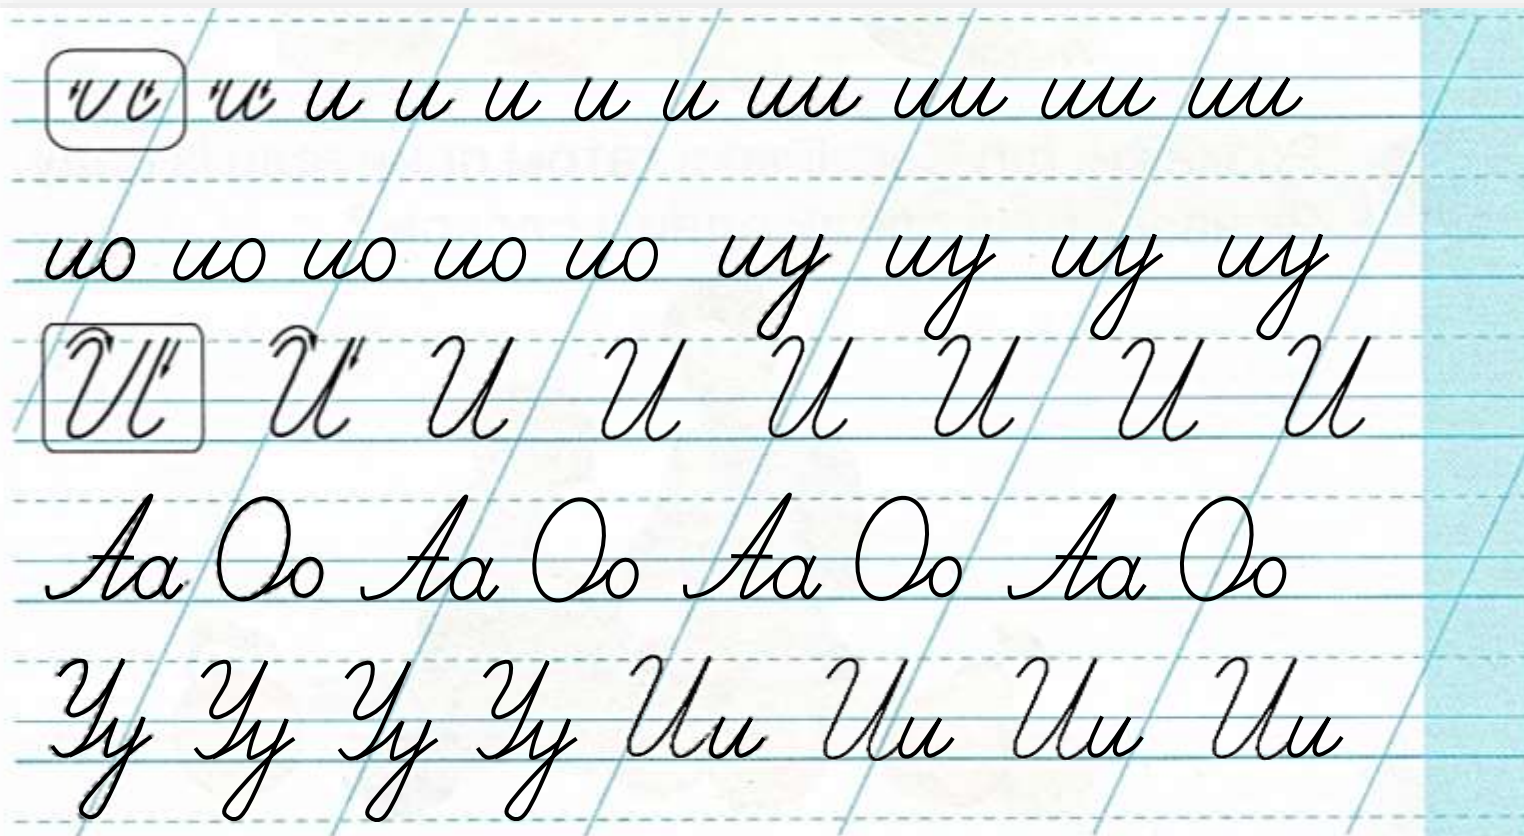 и и и и и и ии ии ии ии
ио ио ио ио ио иу иу иу иу
И И И И И И И
Аа Оо Аа Оо Аа Оо Аа Оо
Уу Уу Уу Уу Ии Ии Ии Ии